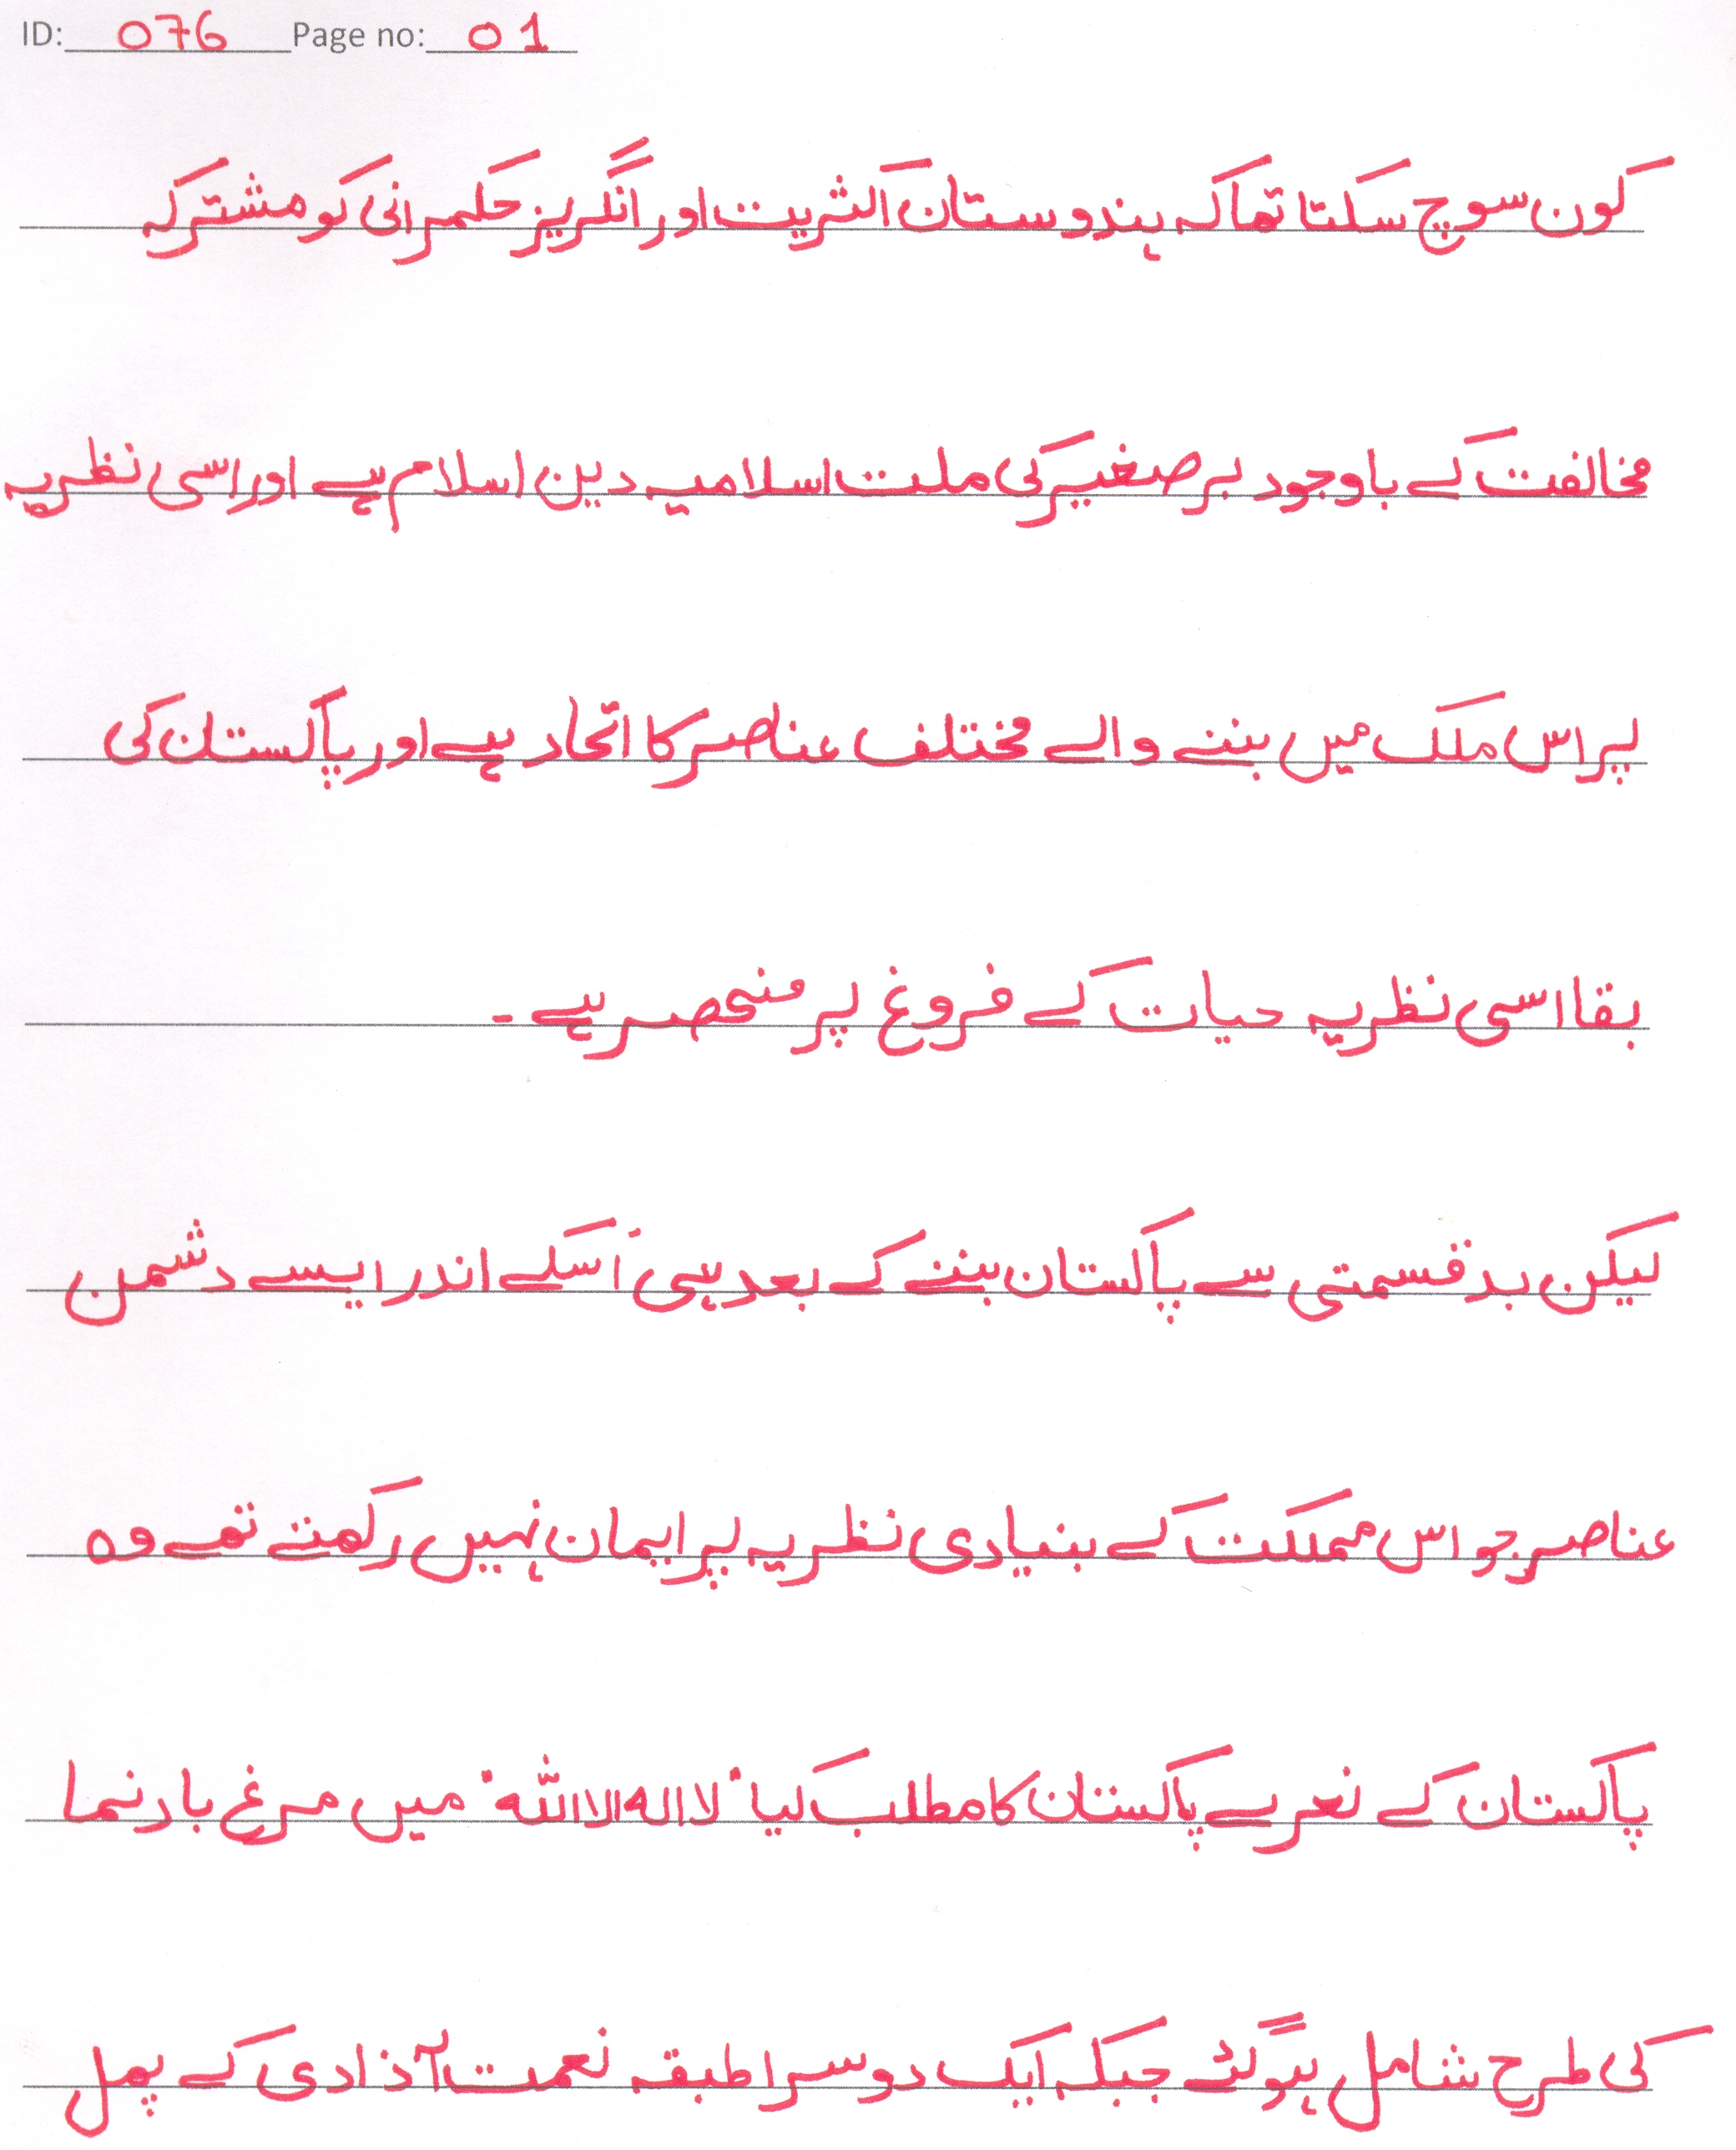 ID: 076 Page no: 01
کون سوچ سکتا تھا کہ ہندوستان اکثریت اور انگریز حکمرانی کو مشترکہ
مخالفت کے باوجود برصغیر کی ملت اسلامیہ دین اسلام ہے اور اسی نظریہ
پر اس ملک میں بننے والے مختلف عناصر کا اتحاد ہے اور پاکستان کی
بقا اسی نظریہ حیات کے فروغ پر منحصر ہے ۔
لیکن بدقسمتی سے پاکستان بننے کے بعد ہی اُسکے اندر ایسے دشمن
عناصر جو اس مملکت کے بنیادی نظریہ پر ایمان نہیں رکھتے تھے وہ
پاکستان کے نعرے پاکستان کا مطلب کیا "لا الہ الا اللہ" میں مرغ بادنما
کی طرح شامل ہوگئے جبکہ ایک دوسرا طبقہ نعمت آذادی کے پھل